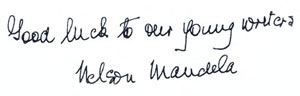 Good luck to our young writers
Nelson Mandela